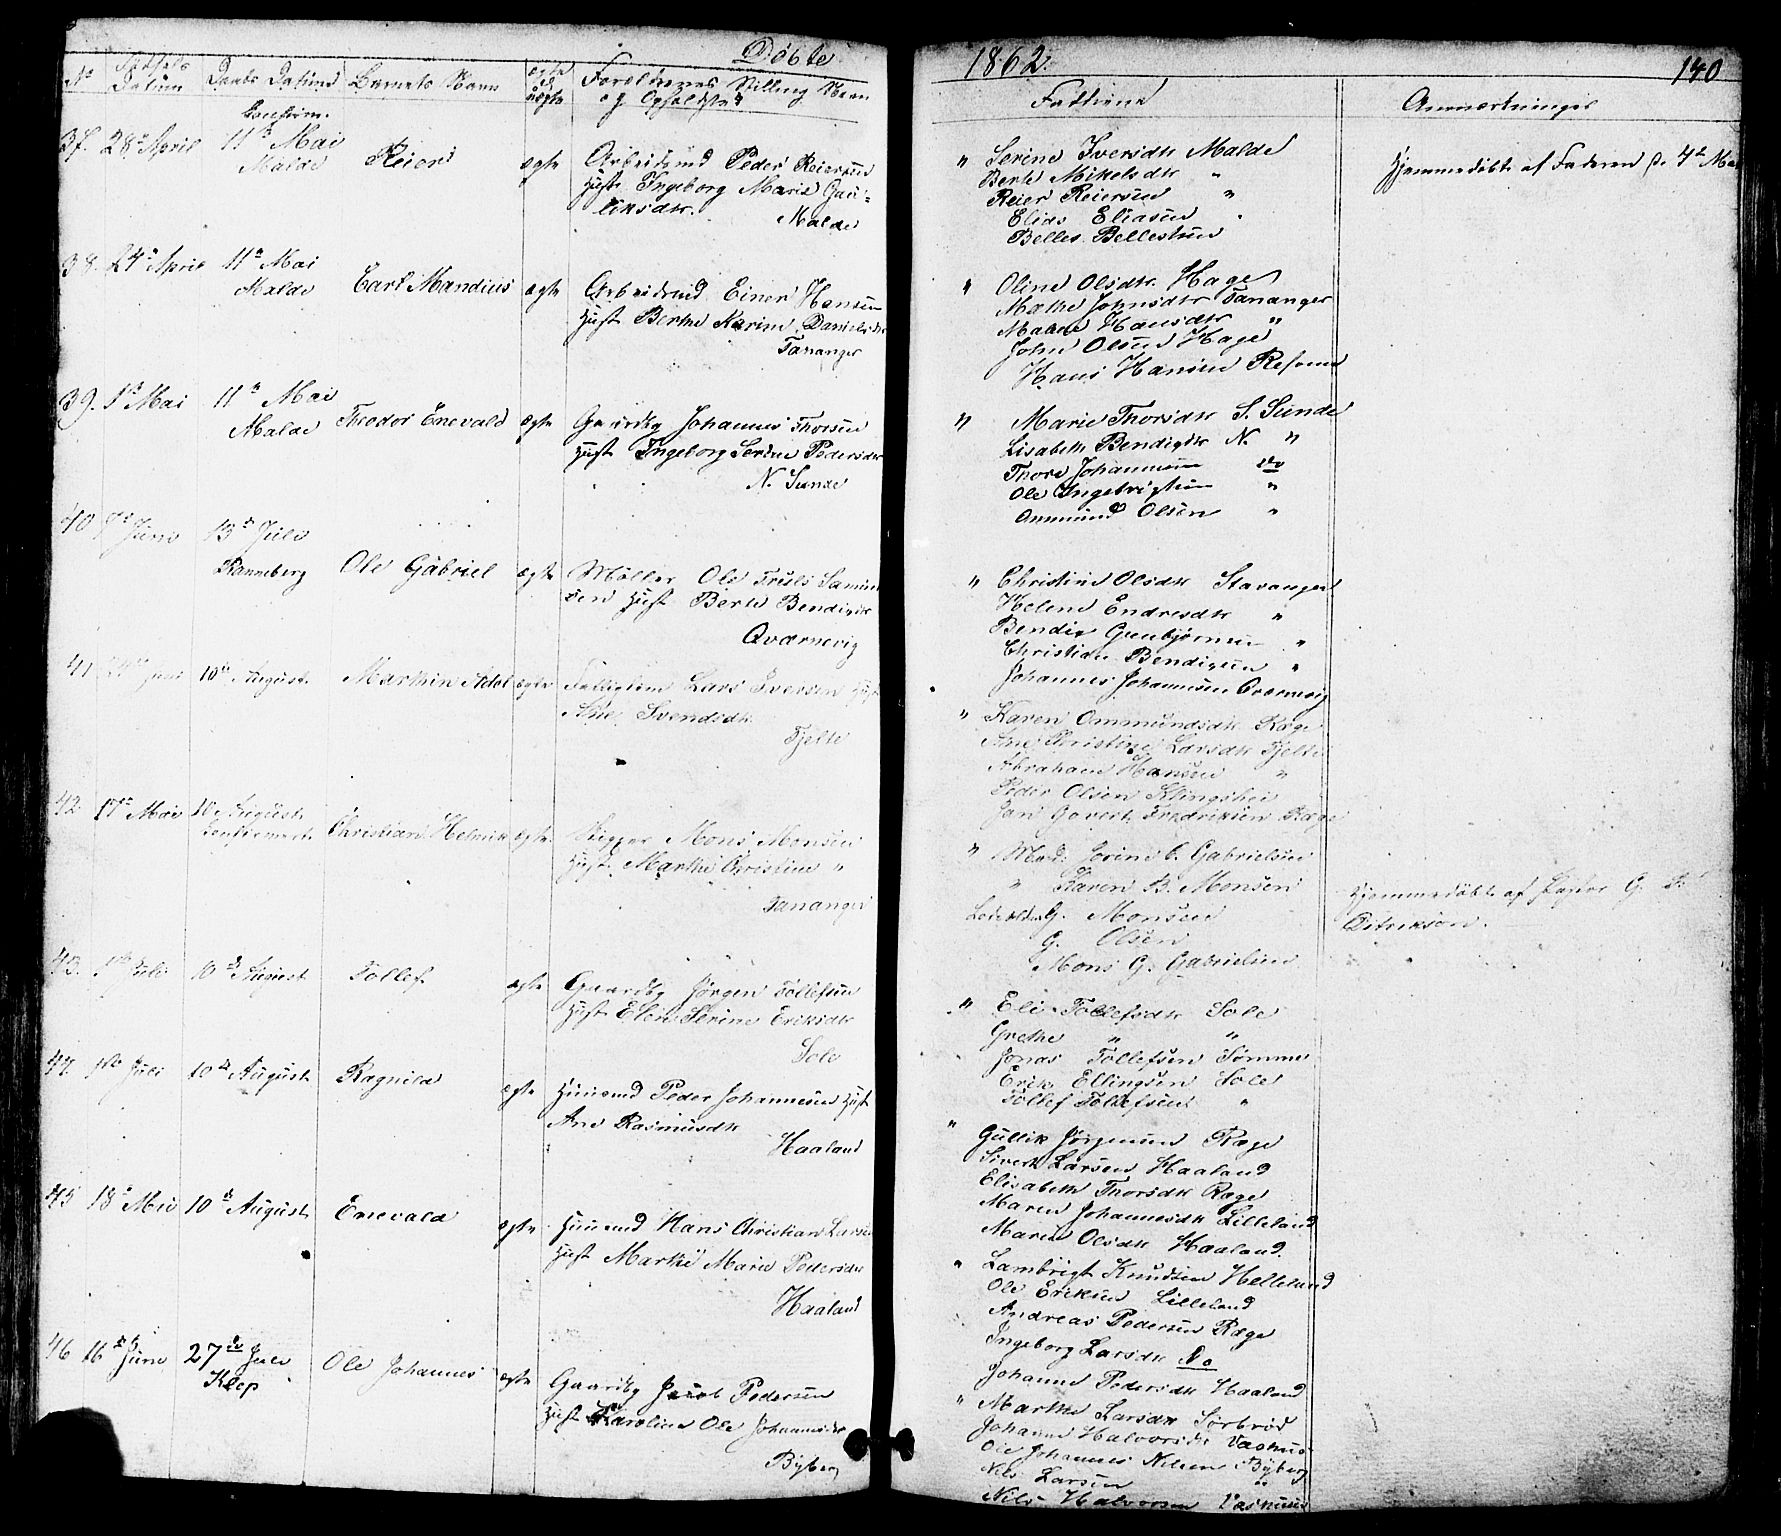 Döbte
1862.
140
No Födsels Datum Daabs Datum Barnets Navn ægte ell uægte Foreldrenes Stilling Navn
og Opholdsted
Faddrene Anmærkninger
37. 28de April 11te Mai Malde Reier ægte Arbeidsmd Peder Reiersen
Hust Ingeborg Marie Gau-
liksdtr.
Malde
" Serine Iversdtr Malde
Berte Mikelsdtr "
Reier Reiersen "
Elias Eliasen
Belles Bellesen
Hjemmedöbt af Faderen 4de Mai
38. 24de April 11te Mai Malde Carl Mandius ægte Arbeidsmd Einer Hansen
Hust Berthe Karine Danielsdtr
Tananger
" Oline Olsdtr Hage
Mathe Johnsdtr Tananger
Malene Hansdtr "
John Olsen Hage
Hans Hansen Resnes
39. 1te Mai 11te Mai Malde Theodor Enevald ægte Gaardbg Johannes Thorsen
Hust Ingeborg Serine Pedersdtr
N. Sunde
" Marie Thorsdtr S. Sunde
Lisabeth Bendixdtr N. "
Thore Johannesen do
Ole Ingebrigtsen "
Ommund Olsen "
40 7de Juni 13de Juli Ranneberg Ole Gabriel ægte Möller Ole Truls Samuel-
sen Hust Berte Bendixdtr
Qværnevig
" Christine Olsdtr Stavanger
Helene Endresdtr "
Bendix Gunbjörnsen "
Christian Bendixsen "
Johannes Johannesen Qværnevig
41 24de Juni 10de August Marthin Adol ægte Fattiglem Lars Iversen Hust
Ane Svendsdtr
Fjelte
" Karen Ommundsdtr Ræge
Ane Christine Larsdtr Fjelte
Abraham Hansen "
Peder Olsen Klingshei
Jan Govert Fredriksen Ræge
42. 17de Mai 10de August Confirmert Christian Helmik ægte Skipper Mons Monsen
Hust. Marthe Christine "
Tananger
" Mad. Serine C. Gabrielsen
" Karen B. Monsen
G. Monsen
G. Olsen
Mons G. Gabrielsen
Hjemmedöbt af G.
Ditrikson.
43. 1te Juli 10de August Tollef ægte Gaardbg Jörgen Tollefsen
Hust Elen Serine Eriksdtr
Sole
" Eli Tollefsdtr Sole
Grethe " "
Jonas Tollefsen Sömme
Erik Ellingsen Sole
Tollef Tollefsen "
44. 1te Juli 10de August Ragnild ægte Huusmd Peder Johannesen Hust
Ane Rasmusdtr
Haaland
" Gullik Jörgensen Ræge
Sivert Larsen Haaland
Elisabeth Thorsdtr Ræge
Maren Johannesdtr Lilleland
Maren Olsdtr Haaland.
45 18de Mai 10de August Enevald ægte Huusmd Hans Christian Larsen
Hust Marthe Marie Pedersdtr
Haaland
" Lambrigt Knudsen Helleland
Ole Eriksen Lilleland
Andreas Pedersen Ræge
Ingeborg Larsdtr do
Johanne Pedersdtr Haaland
46 16de Juni 27de Juli Klep Ole Johannes ægte Gaardbg Jacob Pedersen
Hust Karoline Ole Johannesdtr
Byberg
" Marthe Larsdtr Sörbröd
Johanne Halvorsdtr Vasshus
Ole Johannes Nilsen Byberg
Nils Larsen "
Nils Halvorsen Vasshuus